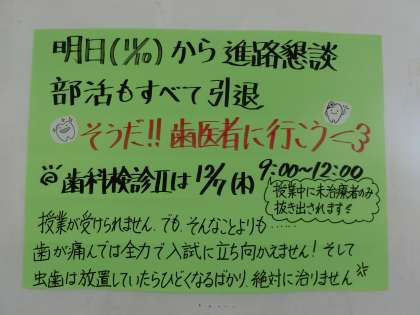 明日(11/10)から進路懇談
部活もすべて引退
そうだ!!歯医者に行こう<3
歯科検診Ⅱは12/7(木) 9:00~12:00
授業中に未治療者のみ
抜き出されます
授業が受けられません。でも、そんなことよりも……
歯が痛んでは全力で入試に立ち向かえません!そして
虫歯は放置していたらひどくなるばかり。絶対に治りません